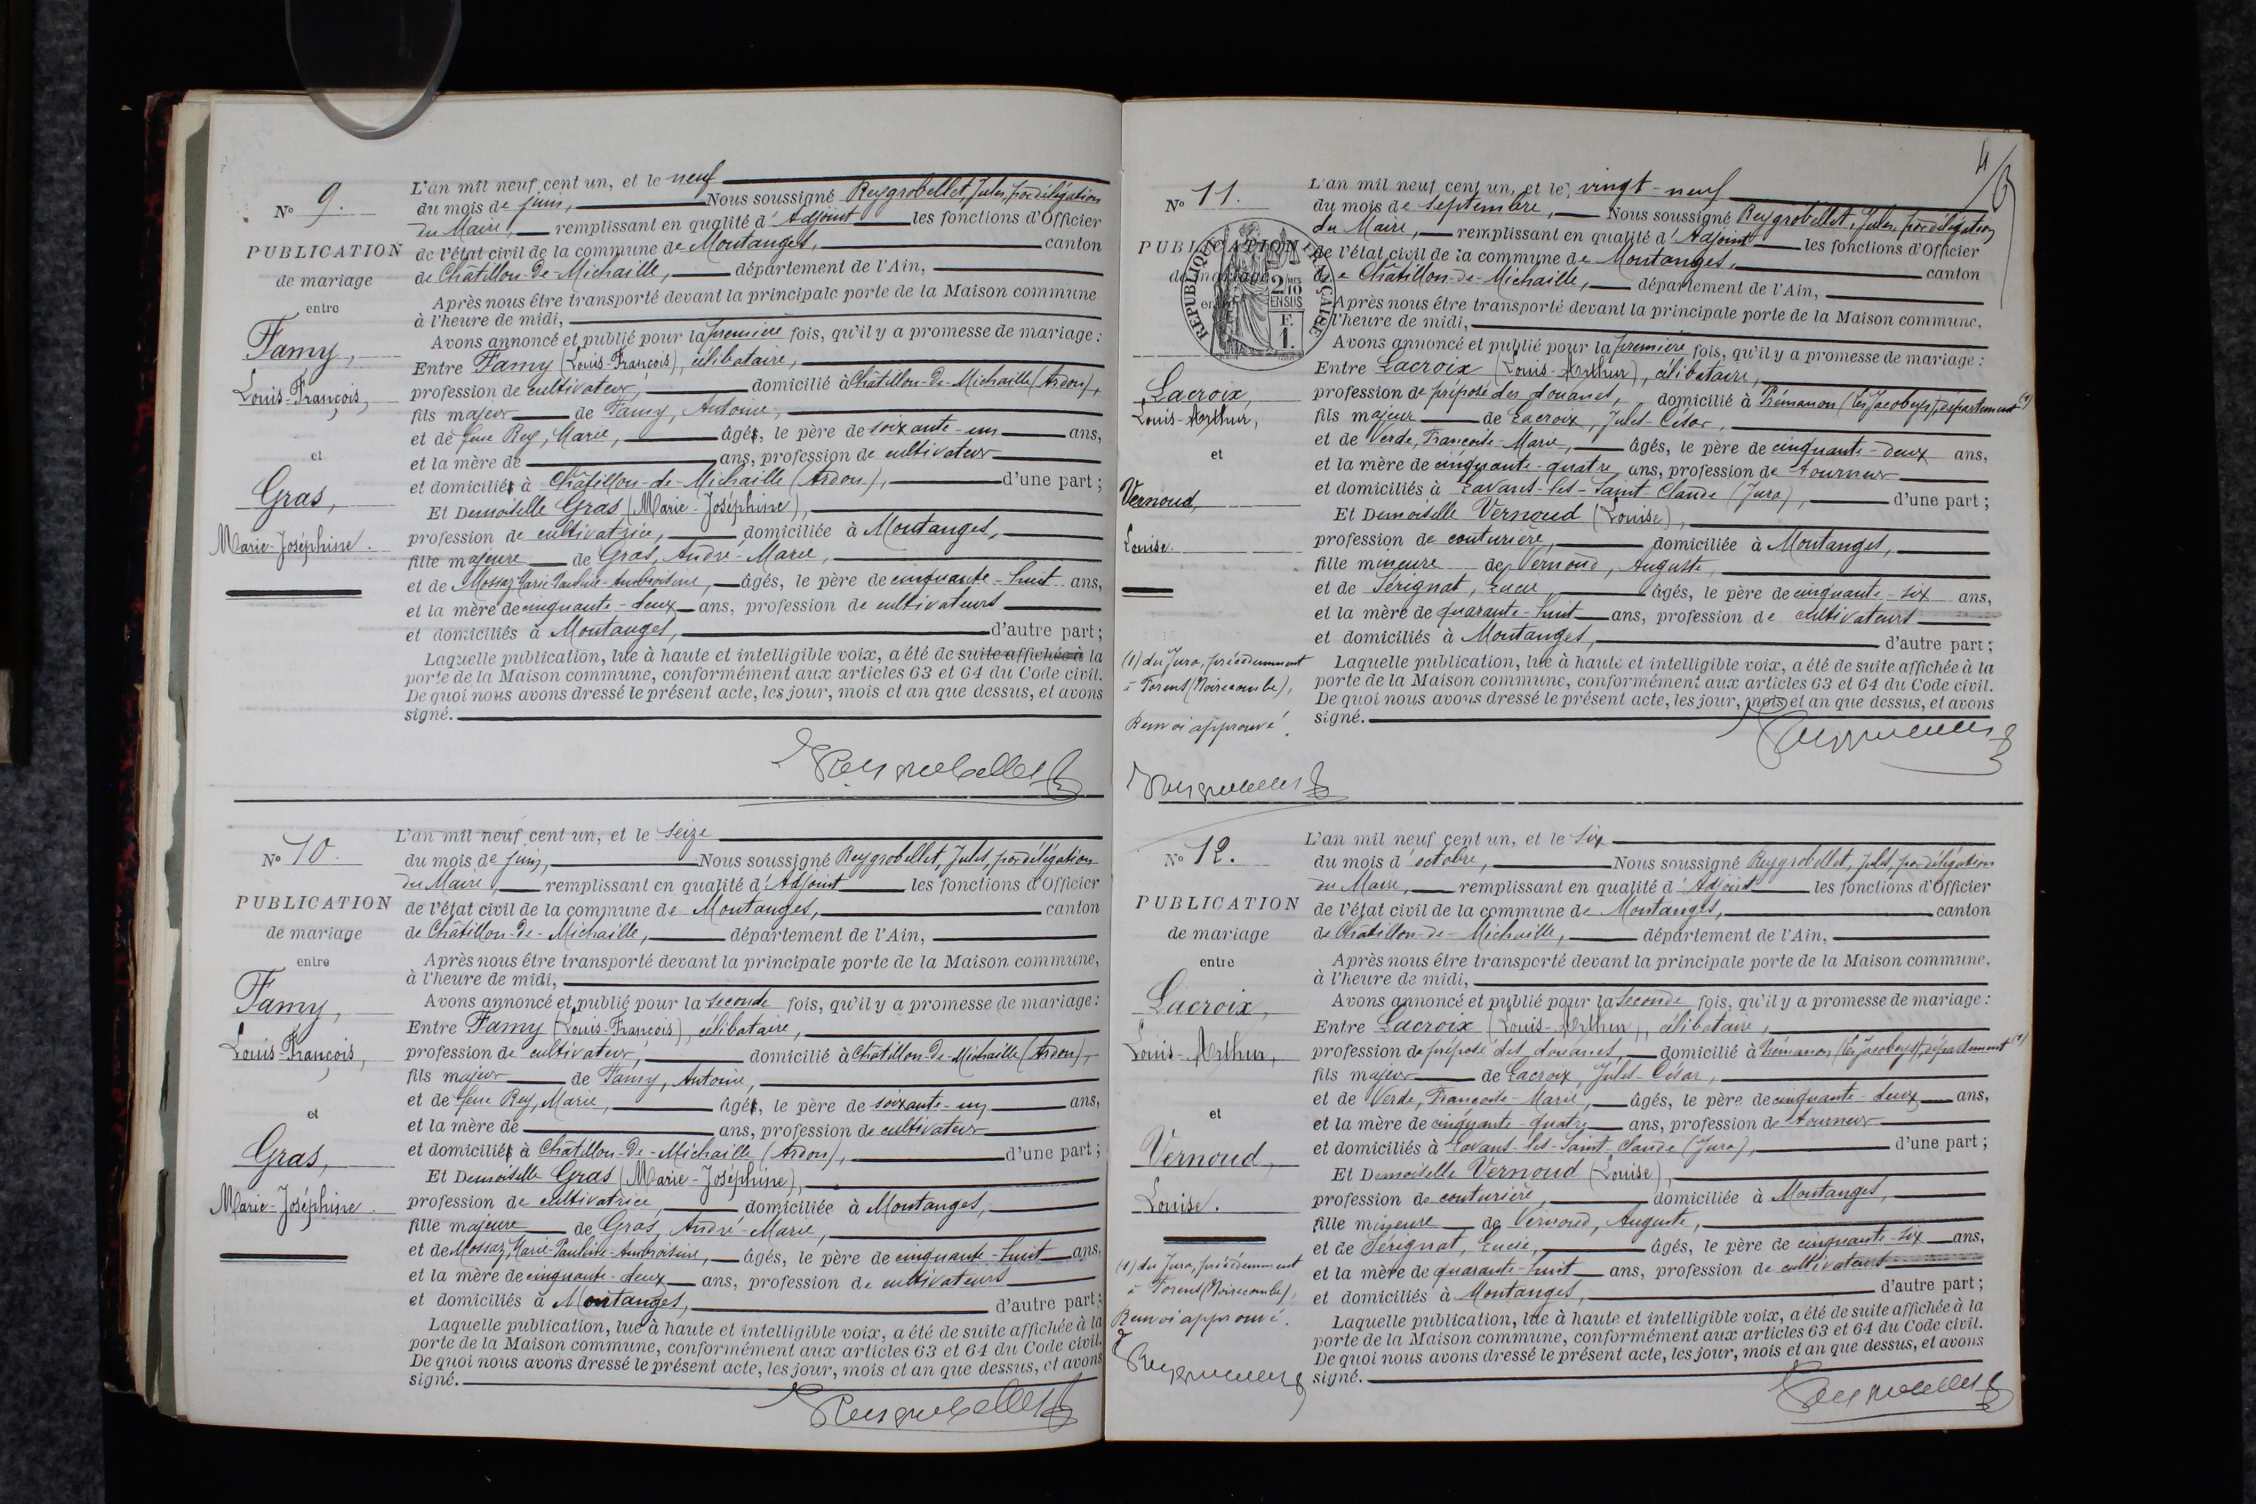 N° 9.
PUBLICATION
de mariage
entre
Famy,
Louis-François,
et
Gras,
Marie-Joséphine.
L'an mil neuf cent un, et le neuf
du mois de juin, Nous soussigné Reygrobellet, Jules, par délégation
du Maire, remplissant en qualité d'Adjoint les fonctions d'Officier
de l'état civil de la commune de Montanges, canton
de Châtillon-de-Michaille, département de l'Ain,
Après nous être transporté devant la principale porte de la Maison commune
à l'heure de midi,
Avons annoncé et publié pour la première fois, qu'il y a promesse de mariage :
Entre Famy (Louis-François), célibataire,
profession de cultivateur, domicilié à Châtillon-de-Michaille (Ardon),
fils majeur de Famy, Antoine,
et de feue Rey, Marie, âgé, le père de soixante-un ans,
et la mère de ans, profession de cultivateur
et domicilié à Châtillon-de-Michaille (Ardon), d'une part ;
Et Demoiselle Gras (Marie-Joséphine),
profession de cultivatrice, domiciliée à Montanges,
fille majeure de Gras, André-Marie,
et de Mossaz, Marie-Pauline-Ambroisine, âgés, le père de cinquante-huit ans,
et la mère de cinquante-deux ans, profession de cultivateurs
et domiciliés à Montanges, d'autre part ;
Laquelle publication, lue à haute et intelligible voix, a été de suite affichée à la
porte de la Maison commune, conformément aux articles 63 et 64 du Code civil.
De quoi nous avons dressé le présent acte, les jour, mois et an que dessus, et avons
signé.
Reygrobellet
N° 10.
PUBLICATION
de mariage
entre
Famy,
Louis-François,
et
Gras,
Marie-Joséphine.
L'an mil neuf cent un, et le seize
du mois de juin, Nous soussigné Reygrobellet, Jules, par délégation
du Maire, remplissant en qualité d'Adjoint les fonctions d'Officier
de l'état civil de la commune de Montanges, canton
de Châtillon-de-Michaille, département de l'Ain,
Après nous être transporté devant la principale porte de la Maison commune,
à l'heure de midi,
Avons annoncé et publié pour la seconde fois, qu'il y a promesse de mariage :
Entre Famy (Louis-François), célibataire,
profession de cultivateur, domicilié à Châtillon-de-Michaille (Ardon),
fils majeur de Famy, Antoine,
et de feue Rey, Marie, âgé, le père de soixante-un ans,
et la mère de ans, profession de cultivateur
et domicilié à Châtillon-de-Michaille (Ardon), d'une part ;
Et Demoiselle Gras (Marie-Joséphine),
profession de cultivatrice, domiciliée à Montanges,
fille majeure de Gras, André-Marie,
et de Mossaz, Marie-Pauline-Ambroisine, âgés, le père de cinquante-huit ans,
et la mère de cinquante-deux ans, profession de cultivateurs
et domiciliés à Montanges, d'autre part ;
Laquelle publication, lue à haute et intelligible voix, a été de suite affichée à la
porte de la Maison commune, conformément aux articles 63 et 64 du Code civil.
De quoi nous avons dressé le présent acte, les jour, mois et an que dessus, et avons
signé.
Reygrobellet
N° 11.
PUBLICATION
de mariage
entre
RÉPUBLIQUE FRANÇAISE
2/10 EN SUS
F. 1.
Lacroix,
Louis-Arthur,
et
Vernoud,
Louise.
(1) du Jura, précédemment
à Forens (Noirecombe),
Renvoi approuvé.
Reygrobellet
L'an mil neuf cent un, et le vingt-neuf
du mois de septembre, Nous soussigné Reygrobellet, Jules, par délégation
du Maire, remplissant en qualité d'Adjoint les fonctions d'Officier
de l'état civil de la commune de Montanges, canton
de Châtillon-de-Michaille, département de l'Ain,
Après nous être transporté devant la principale porte de la Maison commune,
à l'heure de midi,
Avons annoncé et publié pour la première fois, qu'il y a promesse de mariage :
Entre Lacroix (Louis-Arthur), célibataire,
profession de préposé des douanes, domicilié à Prémanon (Les Jacobeys), département (1)
fils majeur de Lacroix, Jules-César,
et de Verde, Françoise-Marie, âgés, le père de cinquante-deux ans,
et la mère de cinquante-quatre ans, profession de tourneur
et domiciliés à Lavans-les-Saint-Claude (Jura), d'une part ;
Et Demoiselle Vernoud (Louise),
profession de couturière, domiciliée à Montanges,
fille mineure de Vernoud, Auguste,
et de Sérignat, Lucie âgés, le père de cinquante-six ans,
et la mère de quarante-huit ans, profession de cultivateurs
et domiciliés à Montanges, d'autre part ;
Laquelle publication, lue à haute et intelligible voix, a été de suite affichée à la
porte de la Maison commune, conformément aux articles 63 et 64 du Code civil.
De quoi nous avons dressé le présent acte, les jour, mois et an que dessus, et avons
signé.
Reygrobellet
N° 12.
PUBLICATION
de mariage
entre
Lacroix,
Louis-Arthur,
et
Vernoud,
Louise.
(1) du Jura, précédemment
à Forens (Noirecombe),
Renvoi approuvé.
Reygrobellet
L'an mil neuf cent un, et le six
du mois d'octobre, Nous soussigné Reygrobellet, Jules, par délégation
du Maire, remplissant en qualité d'Adjoint les fonctions d'Officier
de l'état civil de la commune de Montanges, canton
de Châtillon-de-Michaille, département de l'Ain,
Après nous être transporté devant la principale porte de la Maison commune,
à l'heure de midi,
Avons annoncé et publié pour la seconde fois, qu'il y a promesse de mariage :
Entre Lacroix (Louis-Arthur), célibataire,
profession de préposé des douanes, domicilié à Prémanon (Les Jacobeys), département (1)
fils majeur de Lacroix, Jules-César,
et de Verde, Françoise-Marie, âgés, le père de cinquante-deux ans,
et la mère de cinquante-quatre ans, profession de tourneur
et domiciliés à Lavans-les-Saint-Claude (Jura), d'une part ;
Et Demoiselle Vernoud (Louise),
profession de couturière, domiciliée à Montanges,
fille mineure de Vernoud, Auguste,
et de Sérignat, Lucie, âgés, le père de cinquante-six ans,
et la mère de quarante-huit ans, profession de cultivateurs
et domiciliés à Montanges, d'autre part ;
Laquelle publication, lue à haute et intelligible voix, a été de suite affichée à la
porte de la Maison commune, conformément aux articles 63 et 64 du Code civil.
De quoi nous avons dressé le présent acte, les jour, mois et an que dessus, et avons
signé.
Reygrobellet